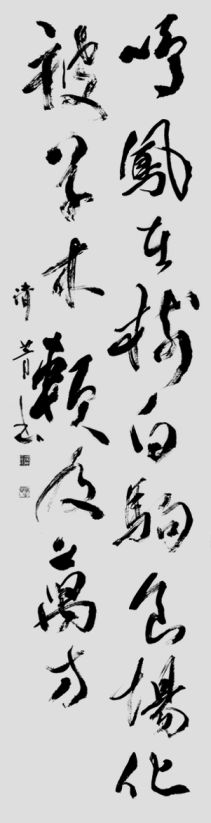 鳴鳳在樹白駒食場化
被草木賴及萬方
清